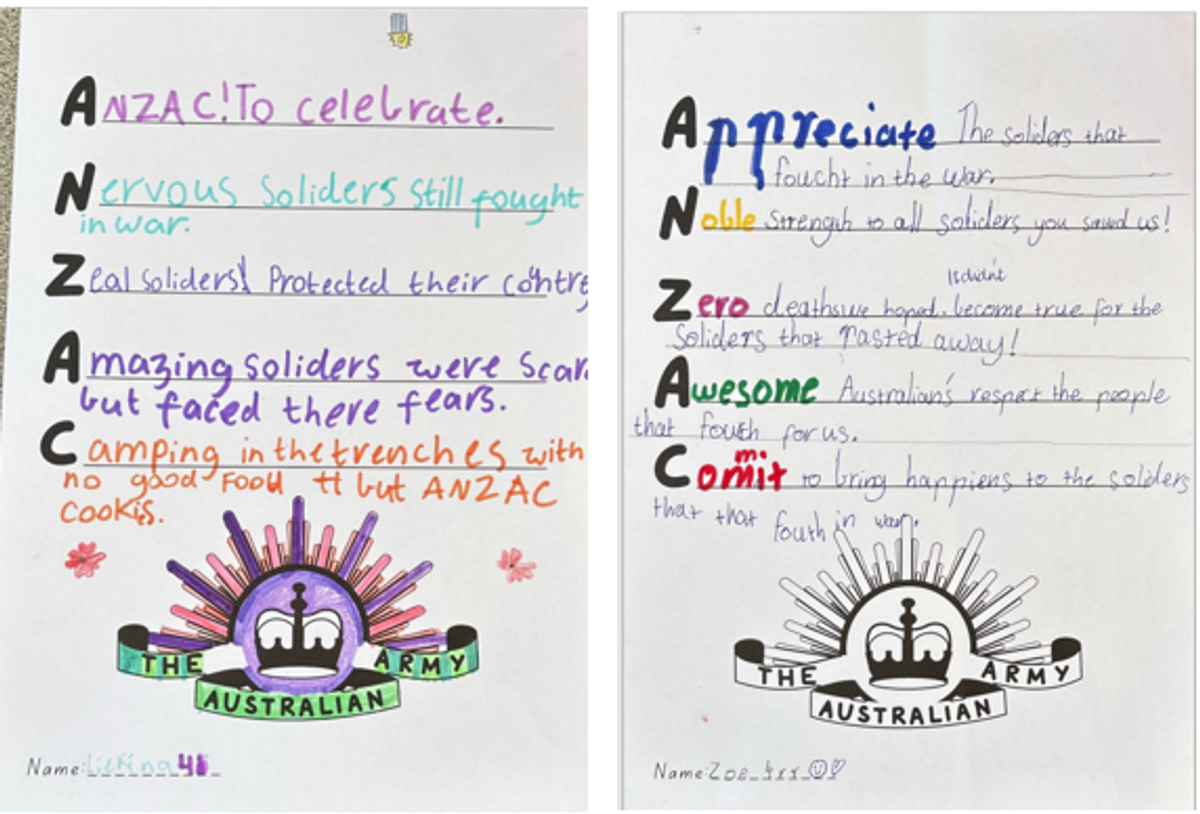 ANZAC! To celebrate.
Nervous Soliders Still fought
in war.
Zeal Soliders! Protected their contre
Amazing soliders were scar
but faced there fears.
Camping in the trenches with
no good Food but ANZAC
Cookis.
THE ARMY
AUSTRALIAN
Name:
Appreciate The soliders that
foucht in the war.
Noble Strength to all soliders you saved us!
It didn't
Zero deaths we hoped. become true for the
Soliders that Pasted away!
Awesome Australian's respect the people
that fouth for us.
Commit to bring happiens to the soliders
that that fouth in war.
THE ARMY
AUSTRALIAN
Name: Zoe